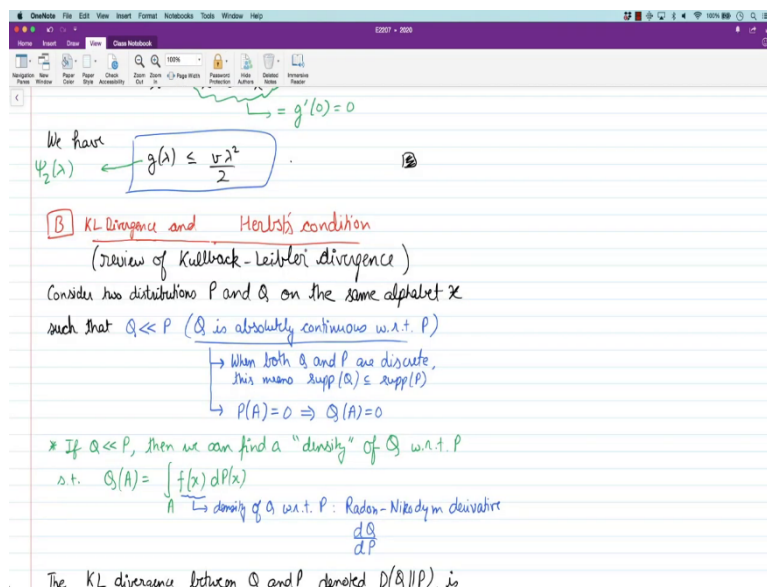 OneNote File Edit View Insert Format Notebooks Tools Window Help
100%
E2207 - 2020
Home Insert Draw View Class Notebook
100%
Navigation Panes New Window Paper Color Paper Style Check Accessibility Zoom Out Zoom In Page Width Password Protection Hide Authors Deleted Notes Immersive Reader
= g'(0) = 0
We have
ψ₂(λ) ← g(λ) ≤ vλ²/2 .
B KL Divergence and Herbst's condition
(review of Kullback-Leibler divergence)
Consider two distributions P and Q on the same alphabet X
such that Q << P (Q is absolutely continuous w.r.t. P)
→ When both Q and P are discrete,
this means supp(Q) ⊆ supp(P)
→ P(A)=0 ⇒ Q(A)=0
* If Q << P, then we can find a "density" of Q w.r.t. P
s.t. Q(A) = ∫_A f(x) dP(x)
→ density of Q w.r.t. P : Radon-Nikodym derivative
dQ/dP
The KL divergence between Q and P denoted D(Q||P) is